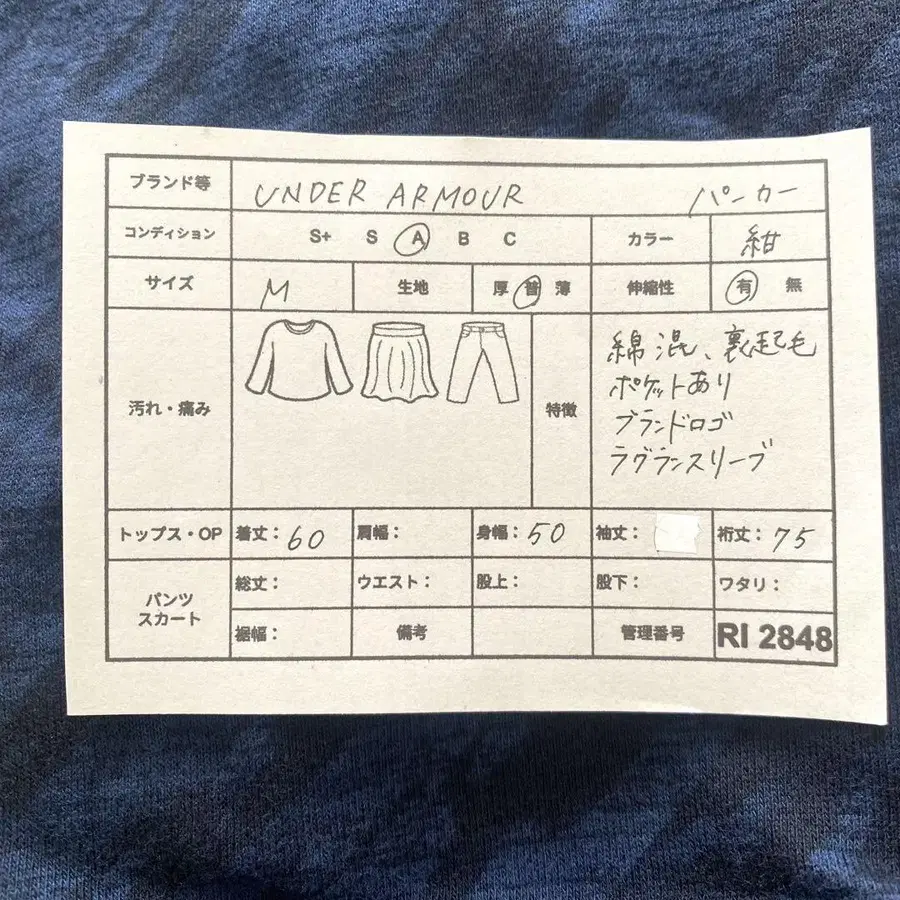 ブランド等 UNDER ARMOUR パーカー
コンディション S+ S A B C カラー 紺
サイズ M 生地 厚 普 薄 伸縮性 有 無
汚れ・痛み 特徴
綿混、裏起毛
ポケットあり
ブランドロゴ
ラグランスリーブ
トップス・OP 着丈：60 肩幅： 身幅：50 袖丈： 裄丈：75
パンツ
スカート
総丈： ウエスト： 股上： 股下： ワタリ：
裾幅： 備考 管理番号 RI 2848